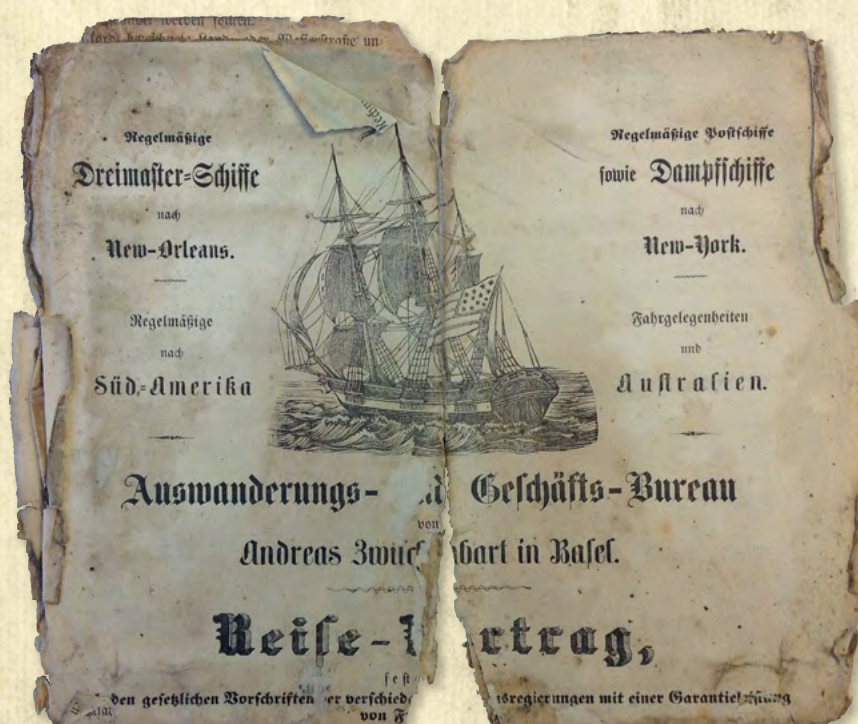 werden sollten.
Regelmäßige
Dreimaster=Schiffe
nach
New-Orleans.
Regelmäßige
nach
Süd=Amerika
Regelmäßige Postschiffe
sowie Dampfschiffe
nach
New-York.
Fahrgelegenheiten
und
Australien.
Auswanderungs- Geschäfts-Bureau
von
Andreas Zwilc bart in Basel.
Reise- rtrag,
fest
den gesetzlichen Vorschriften er verschied sregierungen mit einer Garantie
von F